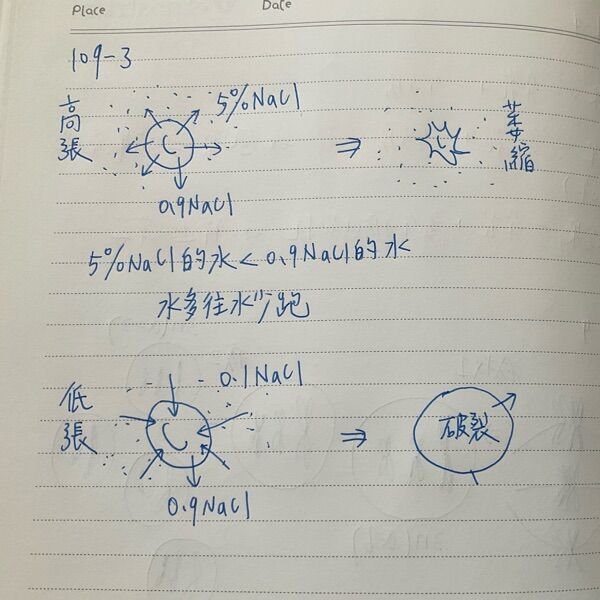 Place Date
109-3
高張 5%NaCl 萎縮
C ⇒ C
0.9NaCl
5%NaCl的水<0.9NaCl的水
水多往水少跑
低張 0.1NaCl
C ⇒ 破裂
0.9NaCl